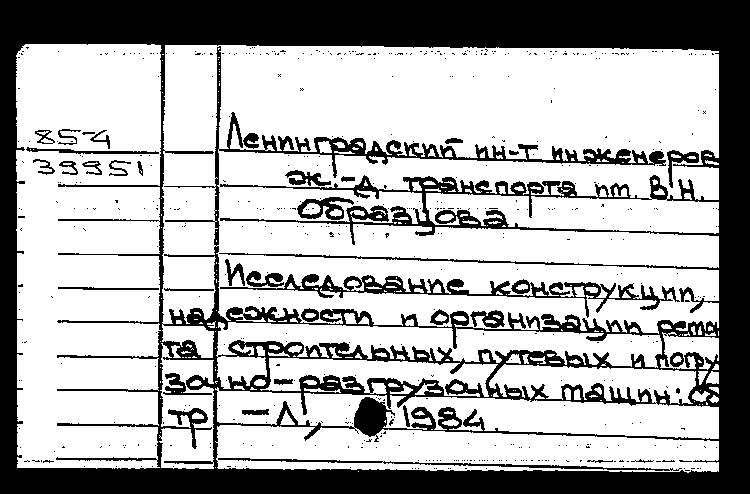 85-4
39951
Ленинградский ин-т инженеров
ж.-д. транспорта им. В.Н.
Образцова.
Исследование конструкции,
надежности и организации ремон
та строительных, путевых и погру
зочно-разгрузочных машин: Сб
тр — Л., 1984.